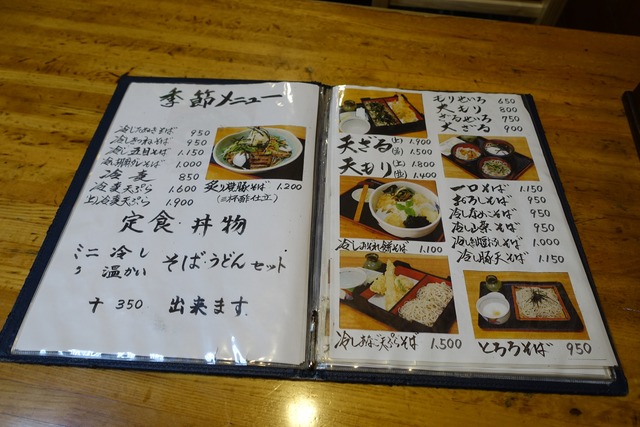 季節メニュー
冷したぬきそば 950
冷しきつねそば 950
冷し五目そば 1.150
1.000
冷麦 850
冷麦天ぷら 1.600
上冷麦天ぷら 1.900
炙り豚そば 1.200
定食・丼物
ミニ 冷し
温かい
そば・うどん セット
+ 350 出来ます
もりせいろ 650
大もり 800
ざるせいろ 750
大ざる 900
天ざる (上) 1.900
1.500
天もり (上) 1.800
1.400
冷しみぞれ餅そば 1.100
冷しあなご天ぷらそば 1.500
一口そば 1.150
おろしそば 950
冷しなめこそば 950
冷し山菜そば 950
1.000
冷し豚天そば 1.150
とろろそば 950